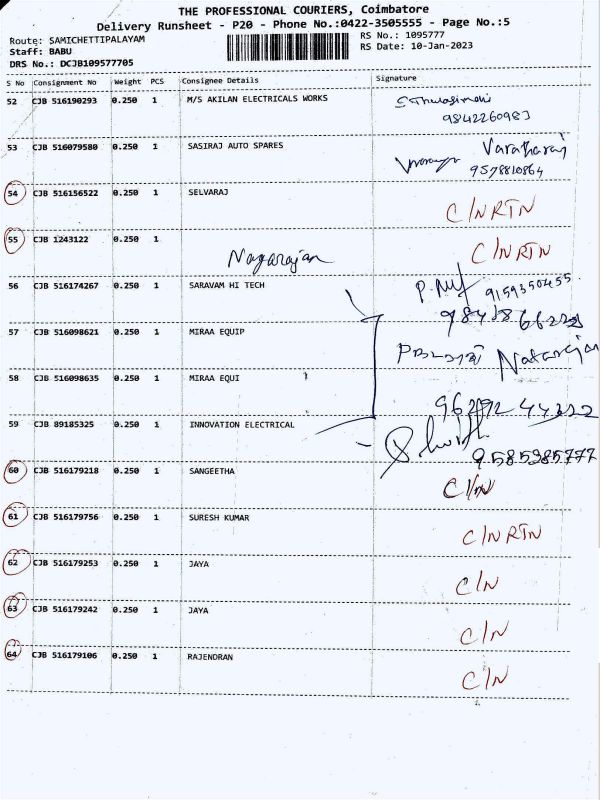 THE PROFESSIONAL COURIERS, Coimbatore
Delivery Runsheet - P20 - Phone No.:0422-3505555 - Page No.:5
Route: SAMICHETTIPALAYAM
RS No.: 1095777
Staff: BABU
RS Date: 10-Jan-2023
DRS No.: DCJB109577705
S No Consignment No Weight PCS Consignee Details Signature
52 CJB 516190293 0.250 1 M/S AKILAN ELECTRICALS WORKS
9842260983
53 CJB 516079580 0.250 1 SASIRAJ AUTO SPARES Varatharaj
9578810864
54 CJB 516156522 0.250 1 SELVARAJ C/NRTN
55 CJB 1243122 0.250 1 Nagarajan C/NRTN
56 CJB 516174267 0.250 1 SARAVAM HI TECH 9159350455
57 CJB 516098621 0.250 1 MIRAA EQUIP Natarajan
58 CJB 516098635 0.250 1 MIRAA EQUI
59 CJB 89185325 0.250 1 INNOVATION ELECTRICAL
9585385777
60 CJB 516179218 0.250 1 SANGEETHA C/N
61 CJB 516179756 0.250 1 SURESH KUMAR C/NRTN
62 CJB 516179253 0.250 1 JAYA C/N
63 CJB 516179242 0.250 1 JAYA C/N
64 CJB 516179106 0.250 1 RAJENDRAN C/N